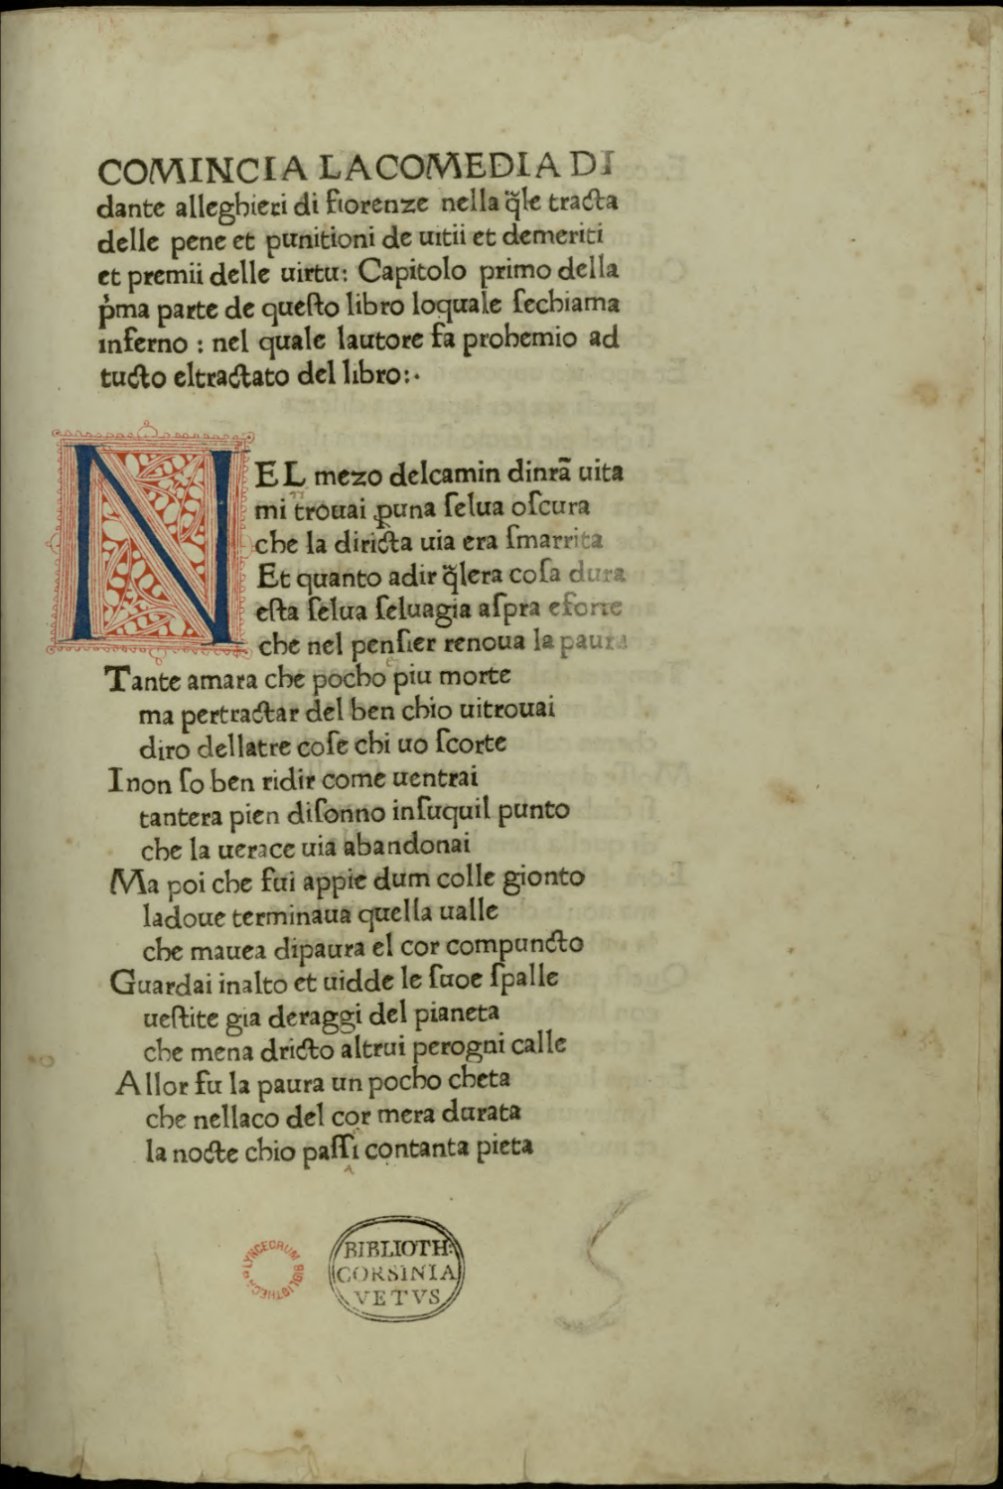 COMINCIA LACOMEDIA DI
dante alleghieri di fiorenze nella q̄le tracta
delle pene et punitioni de uitii et demeriti
et premii delle uirtu: Capitolo primo della
p̓ma parte de queſto libro loquale ſechiama
inferno : nel quale lautore fa prohemio ad
tucto eltractato del libro:·
NEL mezo delcamin dinrā uita
mi trouai ꝑuna ſelua oſcura
che la diricta uia era ſmarrita
Et quanto adir q̄lera coſa dura
eſta ſelua ſeluagia aſpra eforte
che nel penſier renoua la paura
Tante amara che pocho piu morte
ma pertractar del ben chio uitrouai
diro dellatre coſe chi uo ſcorte
Inon ſo ben ridir come uentrai
tantera pien diſonno inſuquil punto
che la uerace uia abandonai
Ma poi che fui appie dum colle gionto
ladoue terminaua quella ualle
che mauea dipaura el cor compuncto
Guardai inalto et uidde le ſuoe ſpalle
ueſtite gia deraggi del pianeta
che mena dricto altrui perogni calle
Allor fu la paura un pocho cheta
che nellaco del cor mera durata
la nocte chio paſſi contanta pieta
LYNCEORUM BIBLIOTHECA
BIBLIOTH:
CORSINIA
VETVS